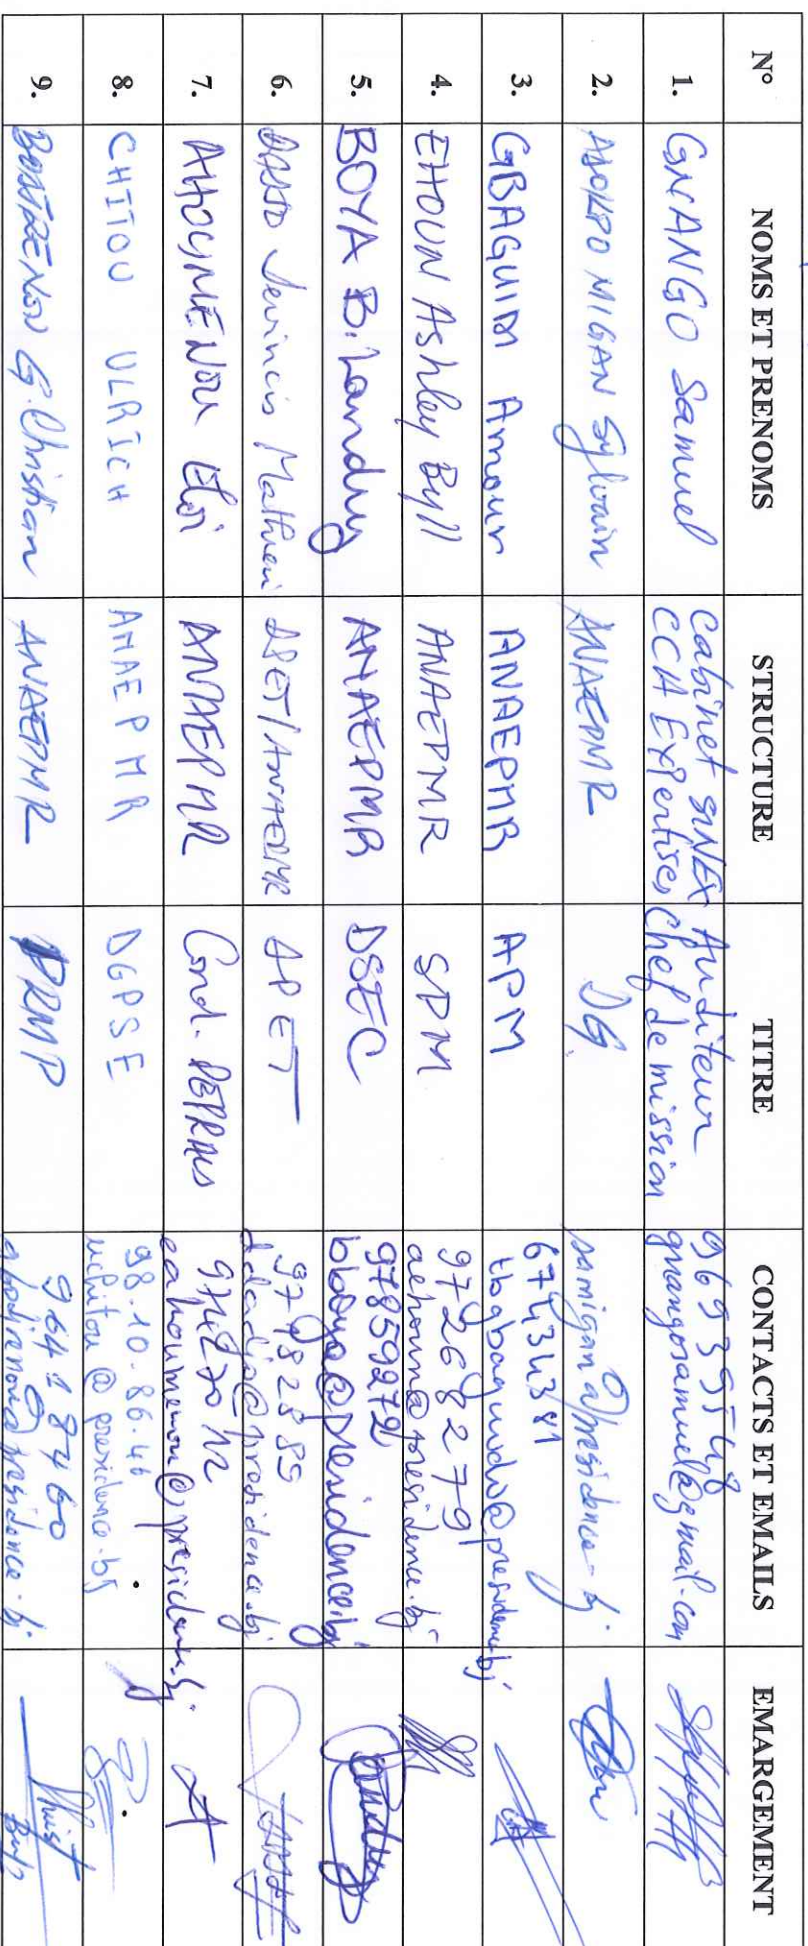 N° NOMS ET PRENOMS STRUCTURE TITRE CONTACTS ET EMAILS EMARGEMENT
1. GNANGO Samuel Cabinet SINEX Auditeur 96935548
CCA Expertises Chef de mission gnangosamuel@gmail.com
2. ADOKPO MIGAN Sylvain ANAEPMR DG samigan@presidence.bj
3. GBAGUIDI Amour ANAEPMR APM 67434381
@presidence.bj
4. EHOUN Ashley Byll ANAEPMR SPM 97268279
aehoun@presidence.bj
5. BOYA B. Landry ANAEPMR DSEC 97859272
bboya@presidence.bj
6. Mathieu DSET/ANAEPMR 97982889
@presidence.bj
7. AHOUMENOU Eloi ANAEPMR Cond.
eahoumenou@presidence.bj
8. CHITOU ULRICH ANAEPMR DGPSE 98.10.86.46
uchitou@presidence.bj
9. G. Christian ANAEPMR PRMP 96418760
@presidence.bj